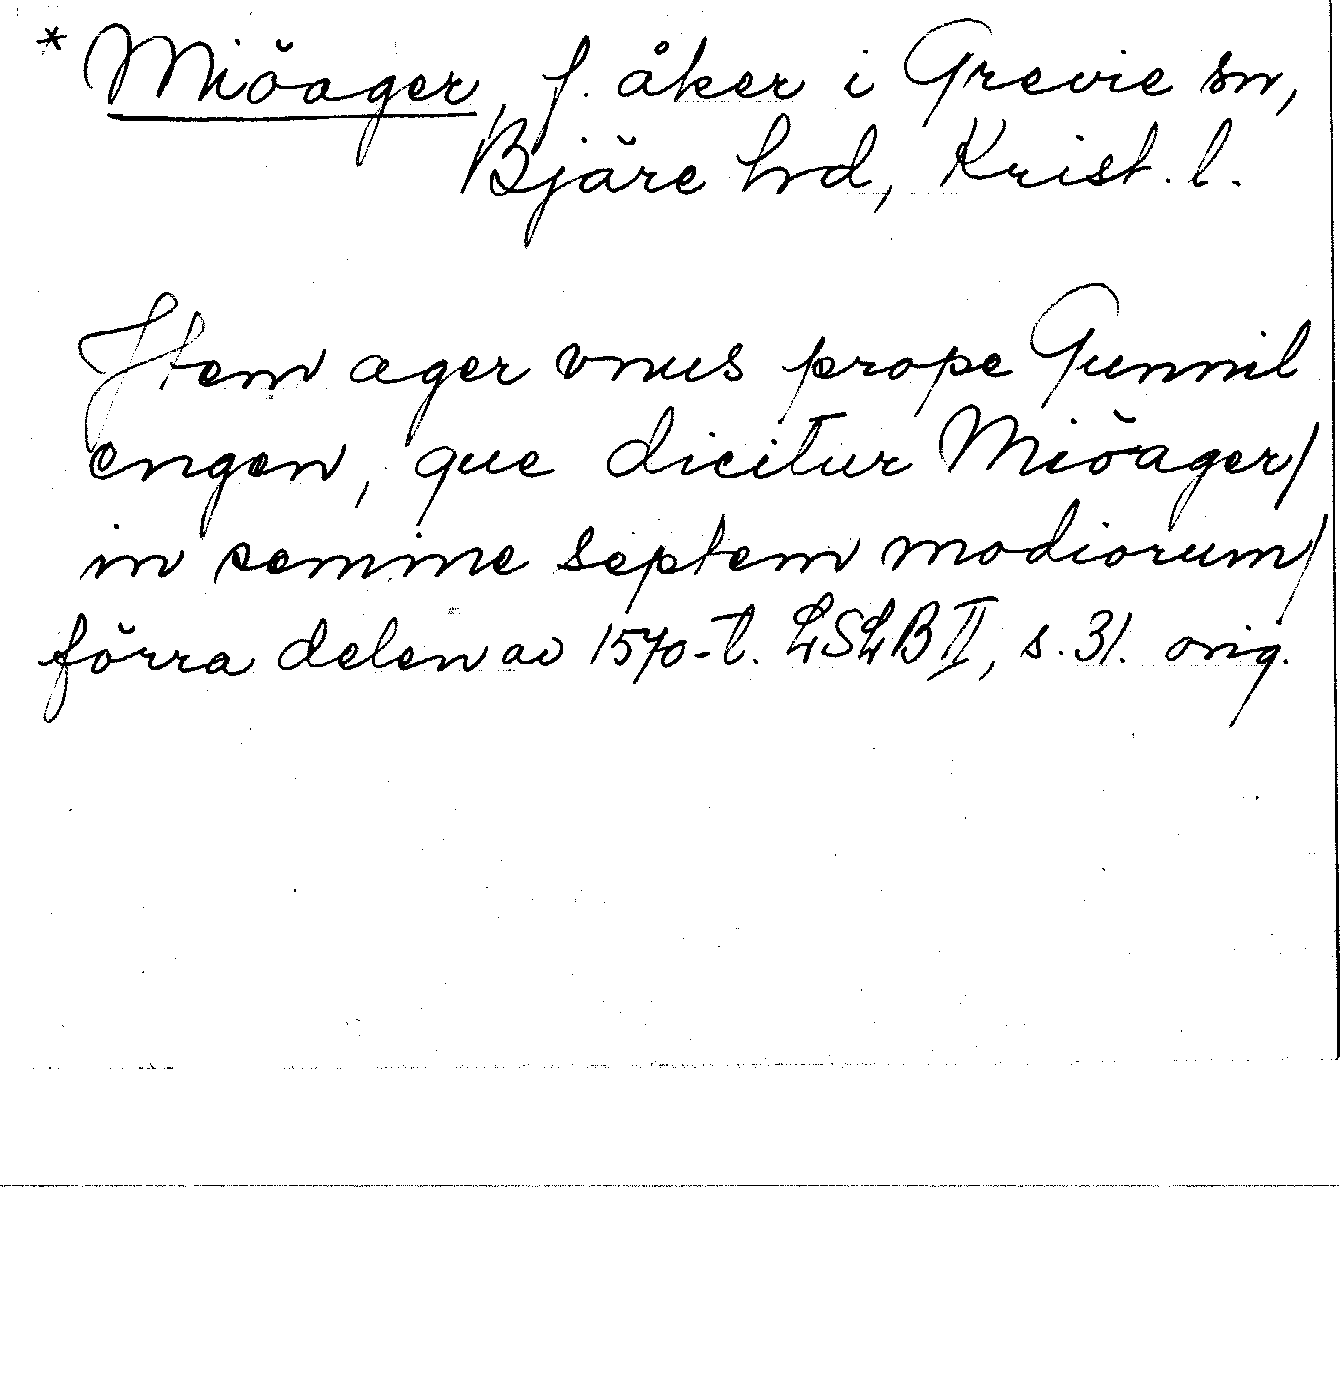 * Miöager, f. åker i Grevie sn,
Bjäre hd, Krist. l.
Jtem ager vnus prope Gunnil
engen, que dicitur Miöager/
in semine septem modiorum/
förra delen av 1570-t. LSLB II, s. 31. orig.